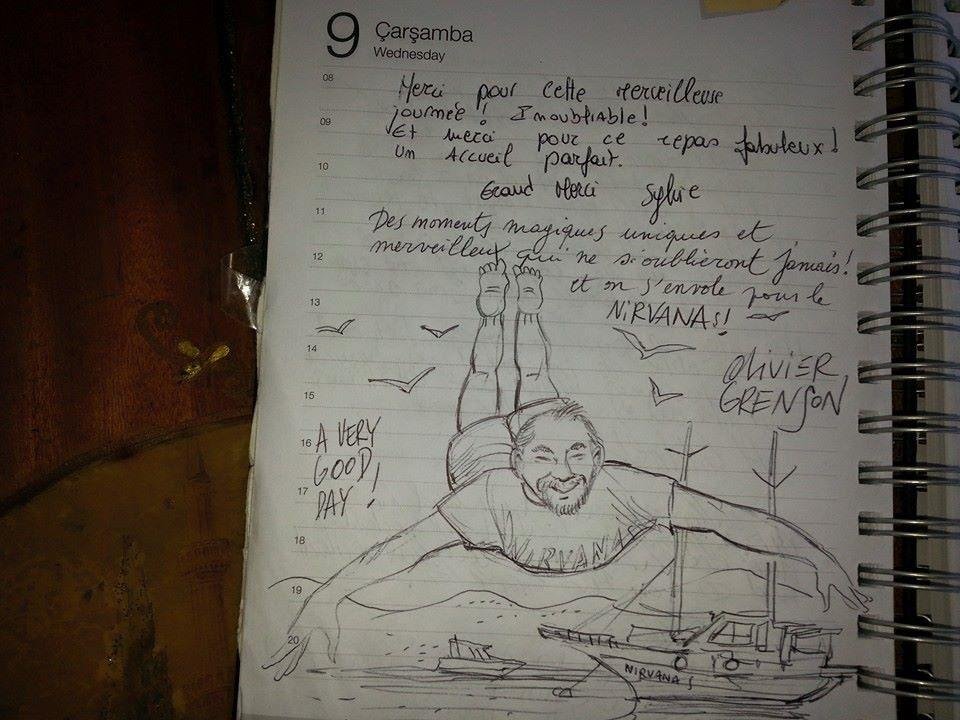 9 Çarşamba
Wednesday
08
Merci pour cette merveilleuse
journée! Inoubliable!
09
Et merci pour ce repas fabuleux!
Un Accueil parfait.
10
Grand Merci Sylvie
11
Des moments magiques uniques et
merveilleux qui ne s'oublieront jamais!
12
et on s'envole pour le
NIRVANAS!
13
14
OLIVIER
GRENSON
15
A VERY
GOOD
DAY!
16
17
NIRVANAS
18
19
20
NIRVANA S